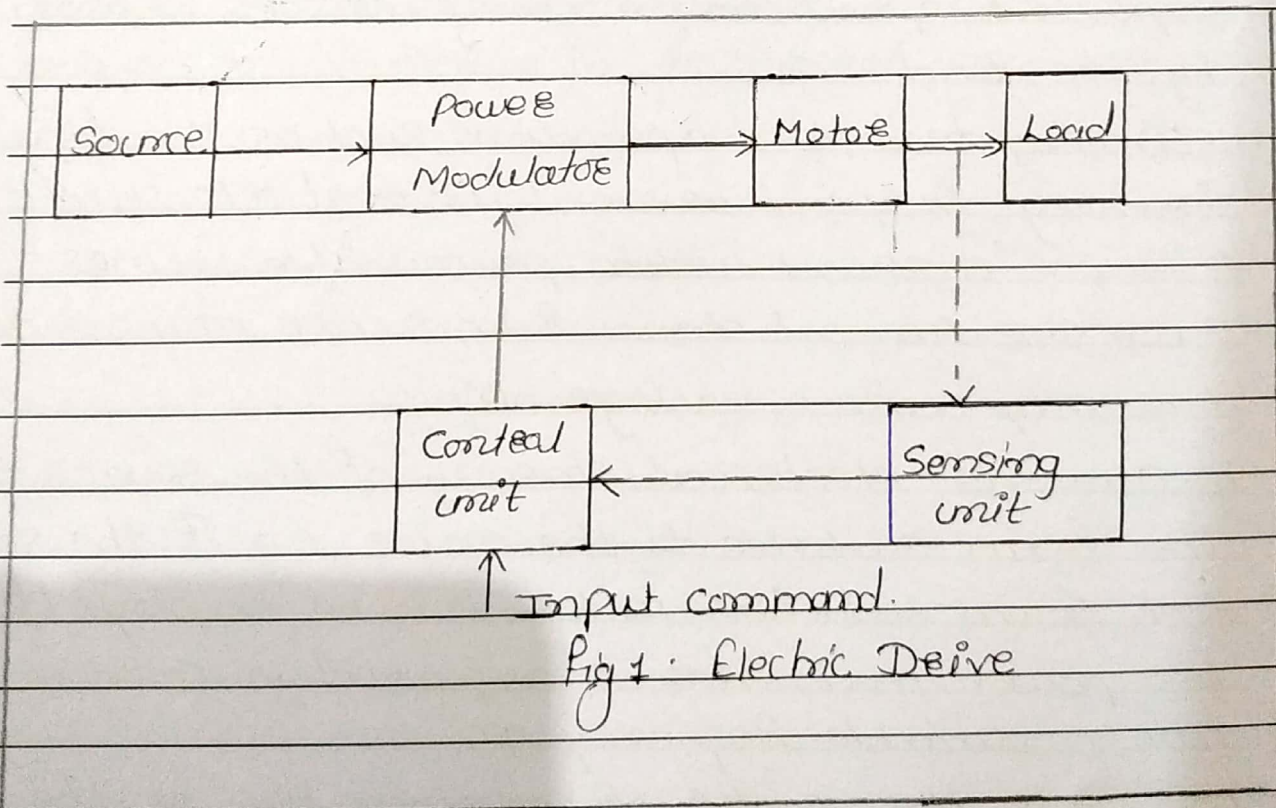 Source
Power
Modulator
Motor
Load
Control
unit
Sensing
unit
Input command.
Fig 1. Electric Drive